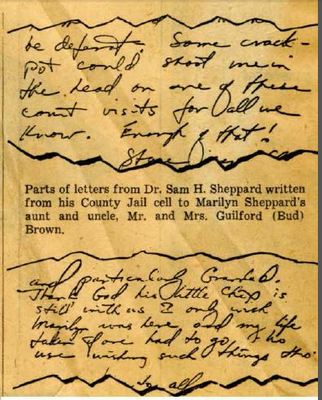 be defiant. Some crack-
pot could shoot me in
the head on one of these
court visits for all we
know. Enough of that!
Parts of letters from Dr. Sam H. Sheppard written
from his County Jail cell to Marilyn Sheppard's
aunt and uncle, Mr. and Mrs. Guilford (Bud)
Brown.
and particularly Grandad.
Thank God his little Chip is
still with us I only wish
Marilyn was here and my life
taken if one had to go, no
use wishing such things tho
to all